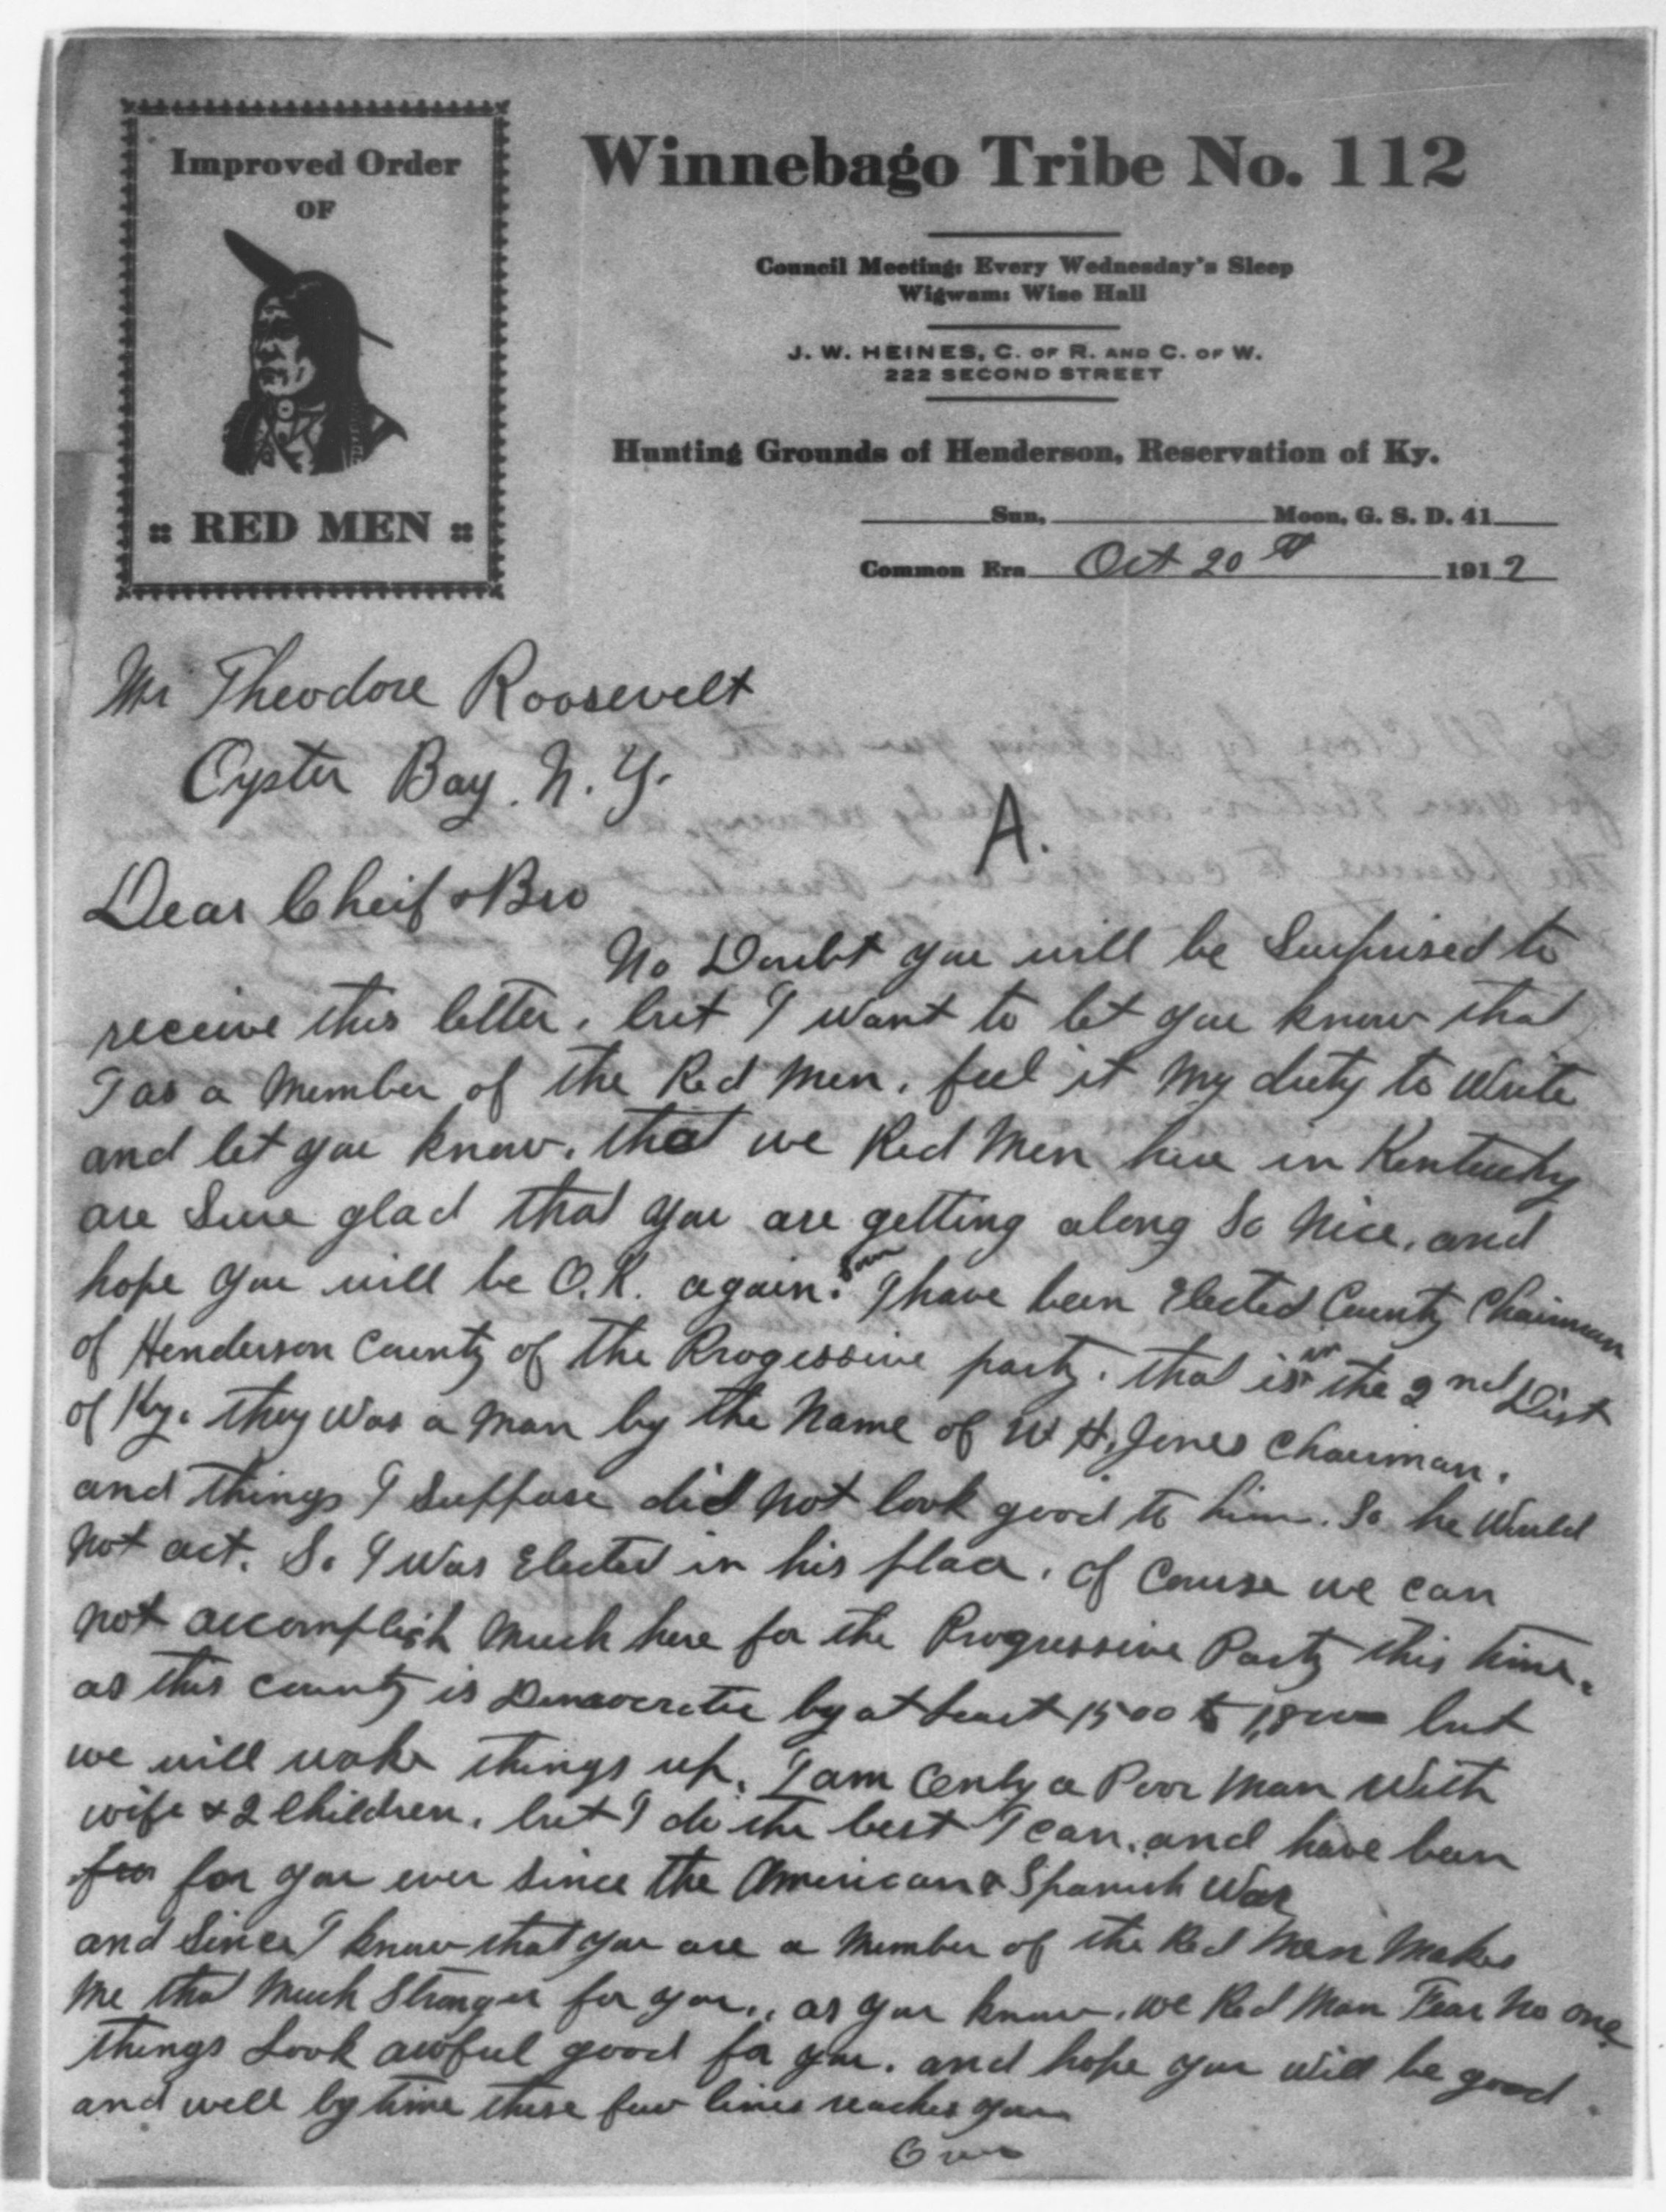 Improved Order
OF
RED MEN
Winnebago Tribe No. 112
Council Meeting: Every Wednesday's Sleep
Wigwam: Wise Hall
J. W. HEINES, C. OF R. AND C. OF W.
222 SECOND STREET
Hunting Grounds of Henderson, Reservation of Ky.
Sun, Moon, G. S. D. 41
Common Era Oct 20th 1912
Mr Theodore Roosevelt
Oyster Bay. N. Y.
A.
Dear Cheif & Bro
No Doubt you will be Surprised to
receive this letter, but I want to let you know that
I as a Member of the Red Men, feel it My duty to Write
and let you know, that we Red Men here in Kentucky
are Sure glad that you are getting along So Nice, and
hope you will be O.K. again. soon I have been Elected County Chairman
of Henderson County of the Progessive party. that is in the 2nd Dist
of Ky. they Was a Man by the Name of W. H. Jones Chairman.
and things I Suppose did Not look good to him. So he Would
Not act. So I Was Elected in his place. Of Course we can
Not accomplish Much here for the Progressive Party this time.
as this county is Democratic by at least 1500 to 1,800 but
we will wake things up. I am Only a Poor Man With
wife & 2 Children. but I do the best I can, and have been
for for you ever Since the American & Spanish War
and Since I know that you are a Member of the Red Men Makes
Me that Much Stronger for you., as you know, we Red Men Fear No one
things Look awful good for you. and hope you will be good
and well by time these few lines reaches you
Over